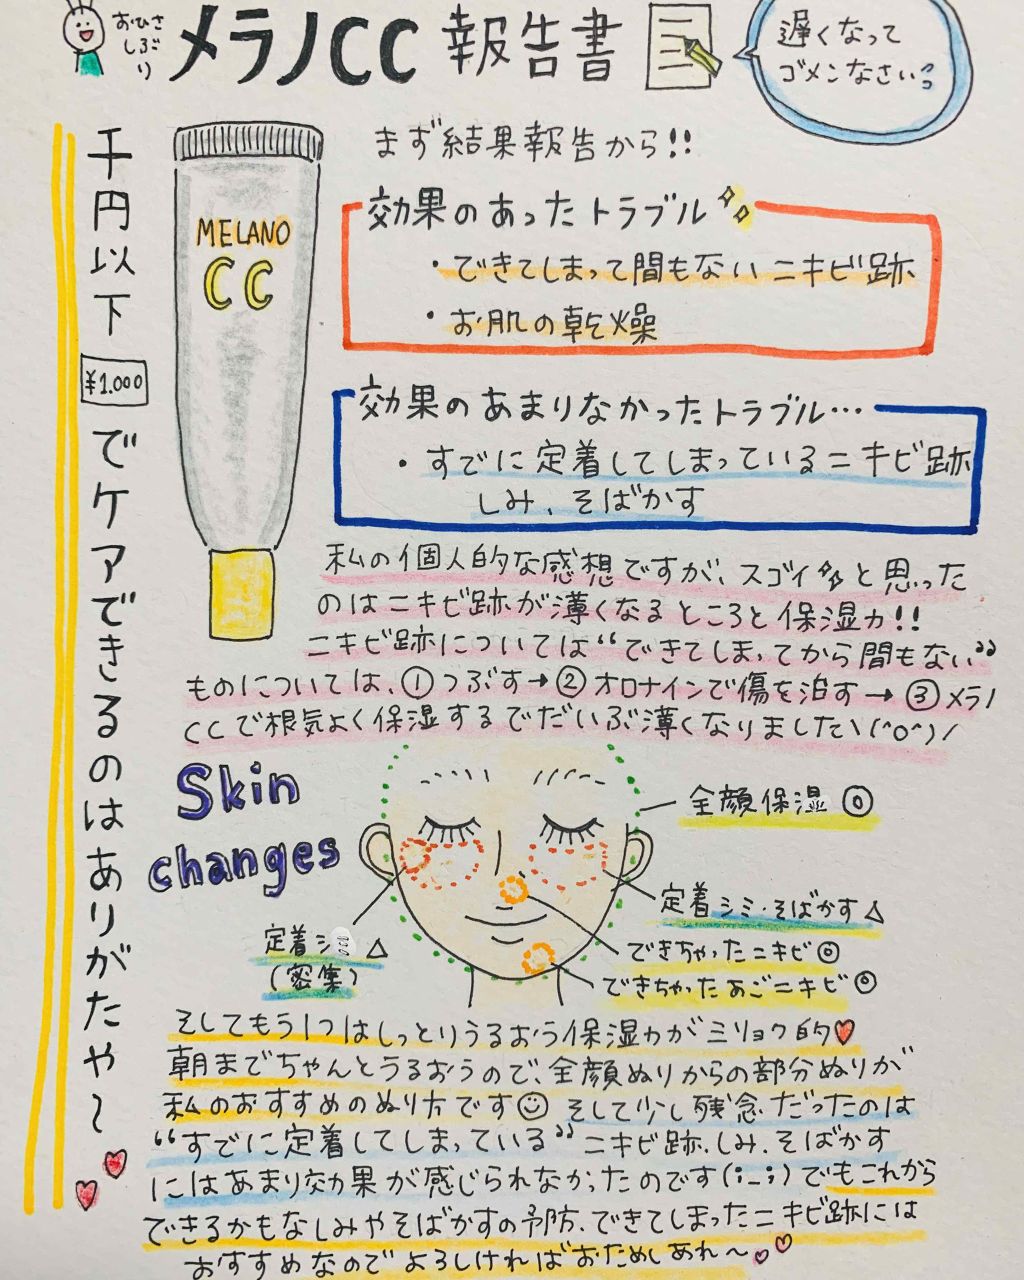 おひさ
しぶ
り
メラノCC 報告書
遅くなって
ゴメンなさい
千円以下
¥1.000
でケアできるのはありがたや〜
MELANO
CC
まず結果報告から!!
効果のあったトラブル
・できてしまって間もないニキビ跡
・お肌の乾燥
効果のあまりなかったトラブル…
・すでに定着してしまっているニキビ跡
しみ、そばかす
私の個人的な感想ですが、スゴイと思った
のはニキビ跡が薄くなるところと保湿力!!
ニキビ跡については“できてしまってから間もない”
ものについては、①つぶす→②オロナインで傷を治す→③メラノ
CCで根気よく保湿するでだいぶ薄くなりました\(^o^)/
Skin
changes
全顔保湿◎
定着シミ・そばかす△
定着シミ△
(密集)
できちゃったニキビ◎
できちゃったあごニキビ◎
そしてもう1つはしっとりうるおう保湿力がミリョク的♥
朝までちゃんとうるおうので、全顔ぬりからの部分ぬりが
私のおすすめのぬり方です☺ そして少し残念だったのは
“すでに定着してしまっている”ニキビ跡、しみ、そばかす
にはあまり効果が感じられなかったのです(;_;)でもこれから
できるかもなしみやそばかすの予防、できてしまったニキビ跡には
おすすめなのでよろしければおためしあれ〜